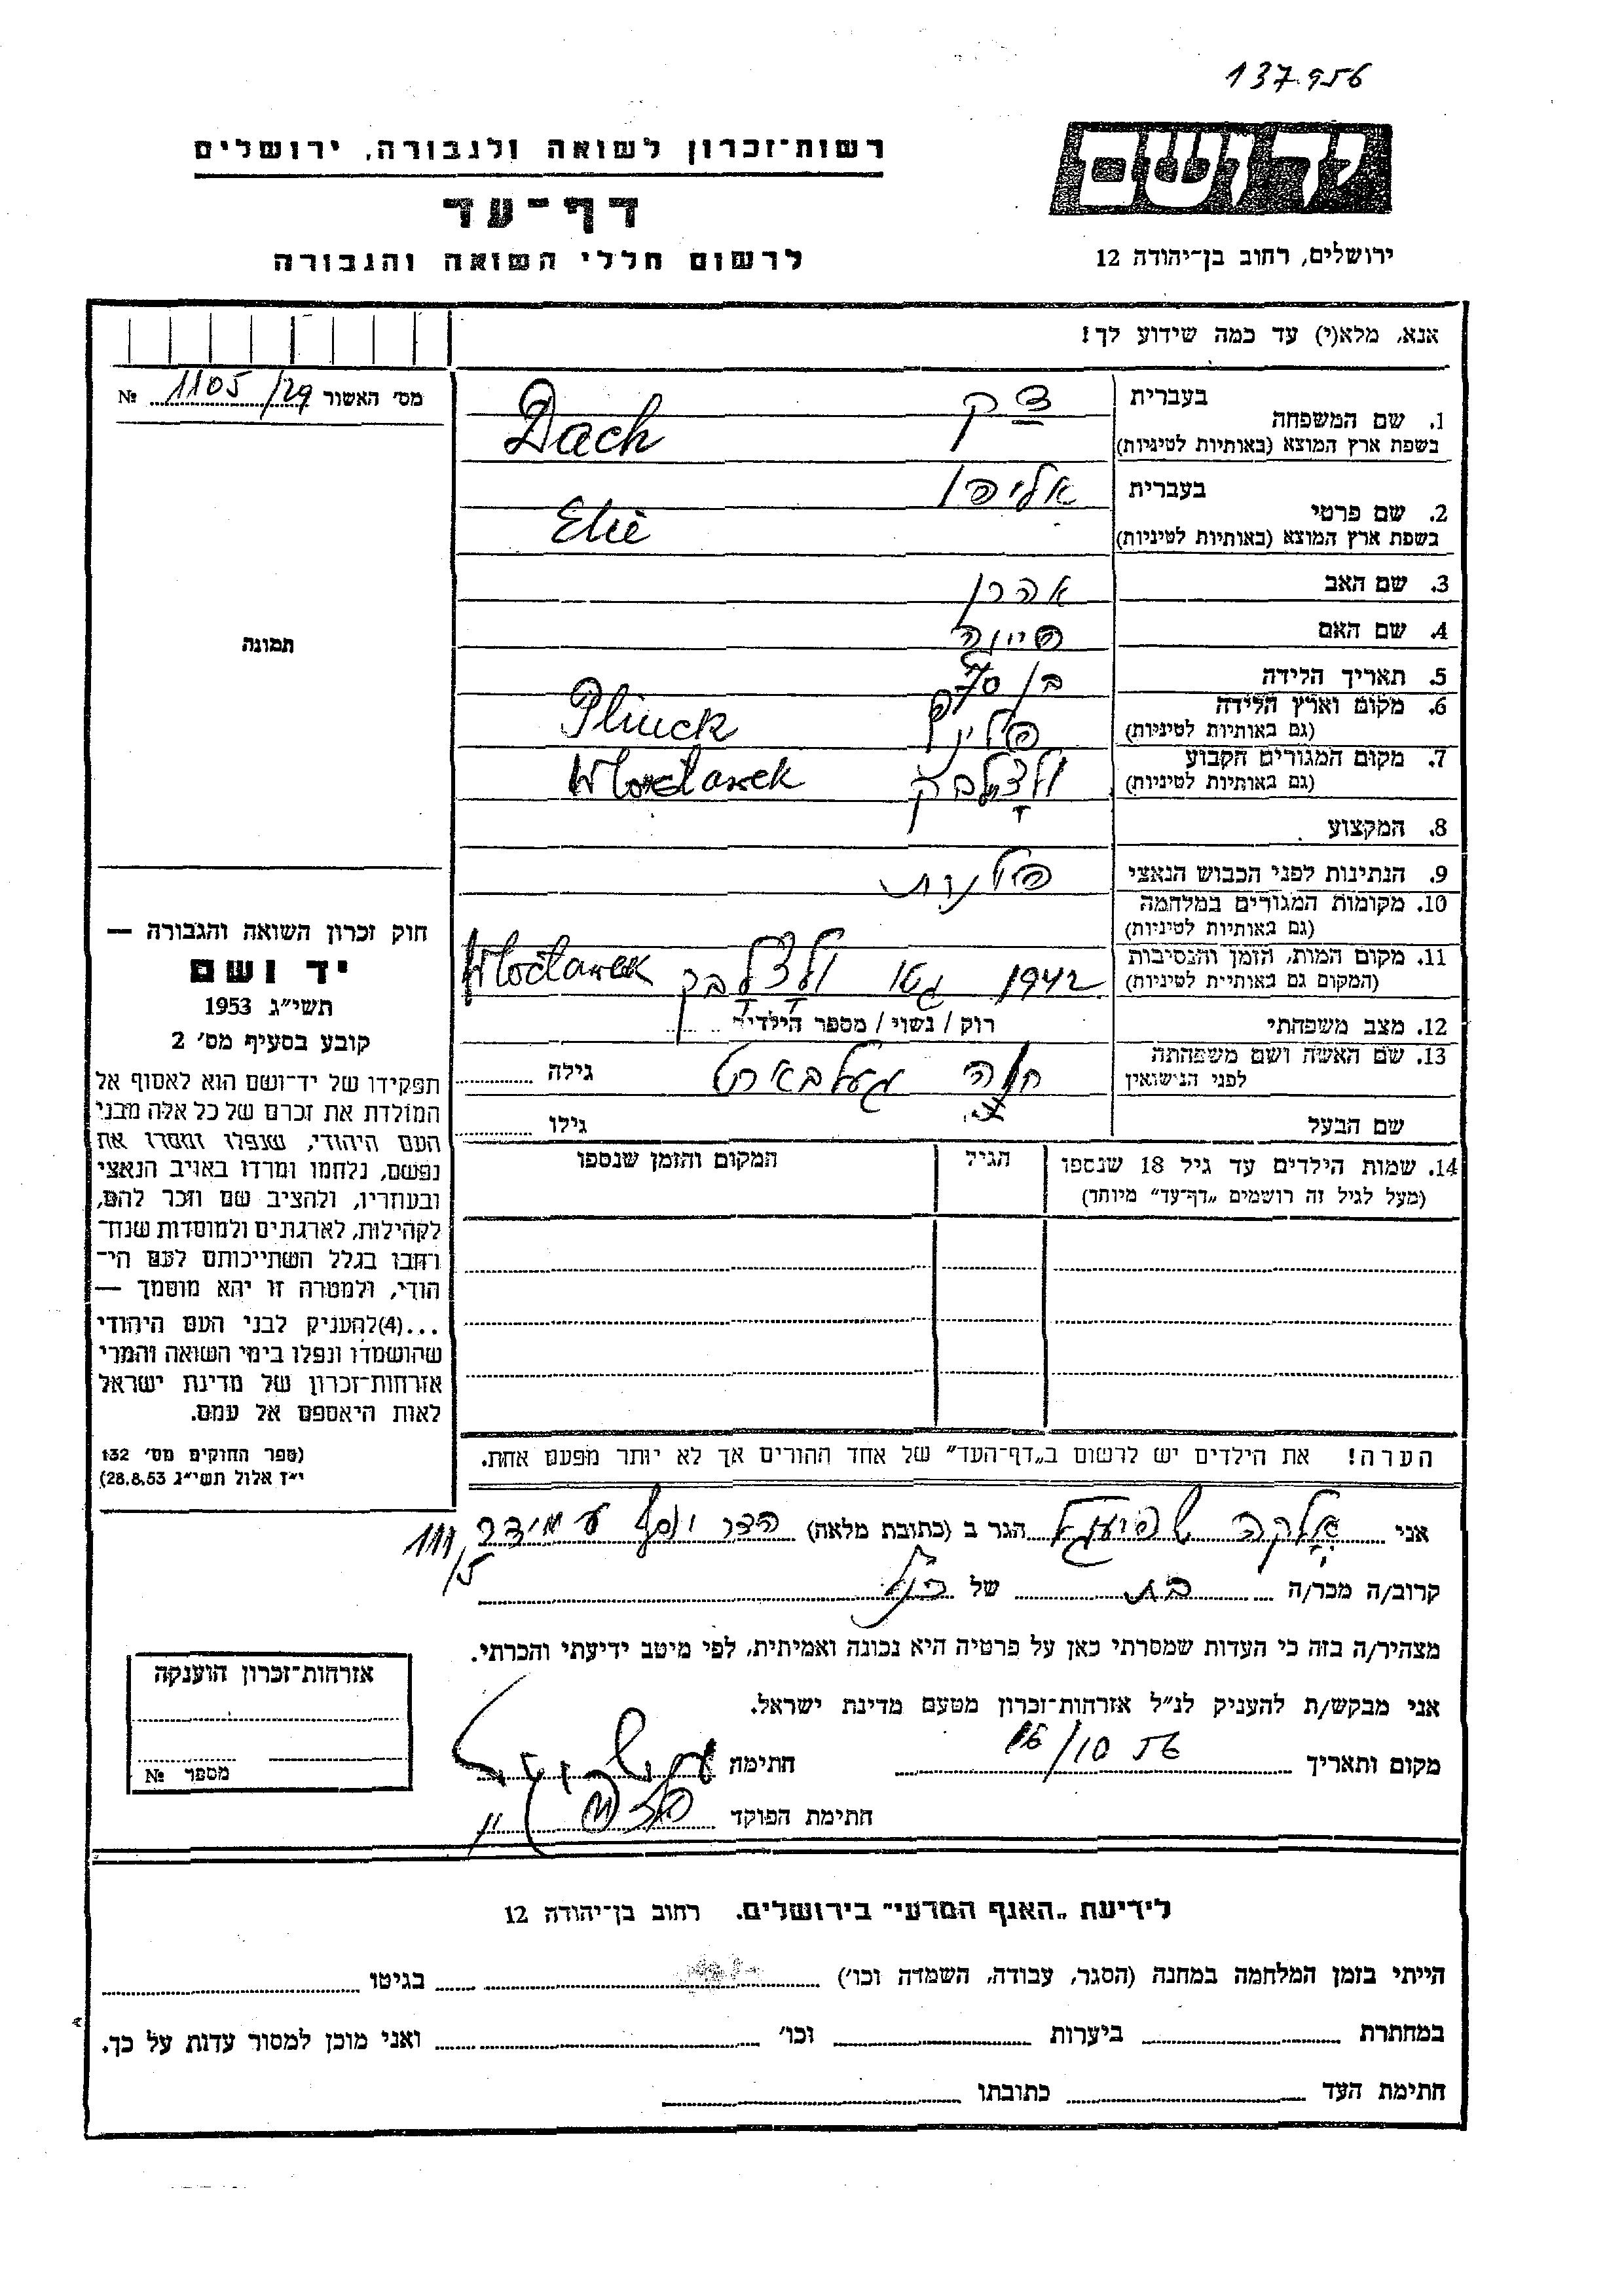 137.956
ידושם
רשות־זכרון לשואה ולגבורה, ירושלים
דף־עד
לרשום חללי השואה והגבורה
ירושלים, רחוב בן־יהודה 12
אנא, מלא(י) עד כמה שידוע לך!
מס' האשור 1105/29 №
תמונה
1. שם המשפחה בעברית
בשפת ארץ המוצא (באותיות לטיניות) Dach
2. שם פרטי בעברית
בשפת ארץ המוצא (באותיות לטיניות) Elie
3. שם האב אהרן
4. שם האם
5. תאריך הלידה בן 50
6. מקום וארץ הלידה
(גם באותיות לטיניות) Pliuck
7. מקום המגורים הקבוע
(גם באותיות לטיניות) Wloclawek
8. המקצוע
9. הנתינות לפני הכבוש הנאצי פולנית
10. מקומות המגורים במלחמה
(גם באותיות לטיניות)
11. מקום המות, הזמן והנסיבות
(המקום גם באותיית לטיניות) 1942 גטו Wloclawek
12. מצב משפחתי רוק / נשוי / מספר הילדים
13. שם האשה ושם משפחתה
לפני הנישואין חנה גילה
שם הבעל גילו
14. שמות הילדים עד גיל 18 שנספו הגיל המקום והזמן שנספו
(מעל לגיל זה רושמים „דף־עד" מיוחד)
הערה! את הילדים יש לרשום ב„דף־העד" של אחד ההורים אך לא יותר מפעם אחת.
חוק זכרון השואה והגבורה —
יד ושם
תשי״ג 1953
קובע בסעיף מס' 2
תפקידו של יד־ושם הוא לאסוף אל
המולדת את זכרם של כל אלה מבני
העם היהודי, שנפלו ומסרו את
נפשם, נלחמו ומרדו באויב הנאצי
ובעוזריו, ולהציב שם וזכר להם,
לקהילות, לארגונים ולמוסדות שנח־
רחבו בגלל השתייכותם לעם הי־
הודי, ולמטרה זו יהא מוסמך —
...(4)להעניק לבני העם היהודי
שהושמדו ונפלו בימי השואה והמרי
אזרחות־זכרון של מדינת ישראל
לאות היאספם אל עמם.
(ספר החוקים מס' 132
י״ז אלול תשי״ג 28.8.53)
אני הגר ב (כתובת מלאה) הדר יוסף עמידר 111/5
קרוב/ה מכר/ה בת של
מצהיר/ה בזה כי העדות שמסרתי כאן על פרטיה היא נכונה ואמיתית, לפי מיטב ידיעתי והכרתי.
אני מבקש/ת להעניק לנ״ל אזרחות־זכרון מטעם מדינת ישראל.
מקום ותאריך 16/10 56 חתימה
חתימת הפוקד
אזרחות־זכרון הוענקה
מספר №
לידיעת „האגף המדעי" בירושלים. רחוב בן־יהודה 12
הייתי בזמן המלחמה במחנה (הסגר, עבודה, השמדה וכו') בגיטו
במחתרת ביערות וכו' ואני מוכן למסור עדות על כך.
חתימת העד כתובתו